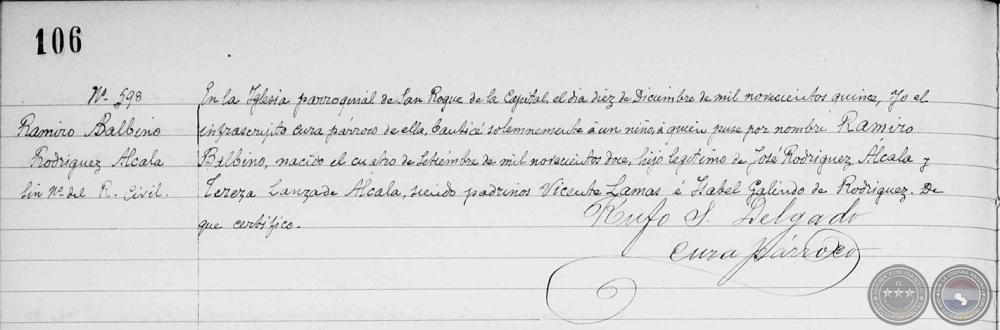 106
Nº 598
Ramiro Balbino
Rodriguez Alcala
Sin Nº del R. Civil.
En la Iglesia parroquial de San Roque de la Capital, el dia diez de Diciembre de mil novecientos quince, Yo el
infrascripto cura párroco de ella, bauticé solemnemente á un niño, á quien puse por nombre Ramiro
Balbino, nacido el cuatro de Setiembre de mil novecientos doce, hijo legítimo de José Rodriguez Alcala y
Tereza Lamas de Alcala, siendo padrinos Vicente Lamas é Isabel Galindo de Rodriguez. De
que certifico.
Rufo S. Delgado
cura párroco